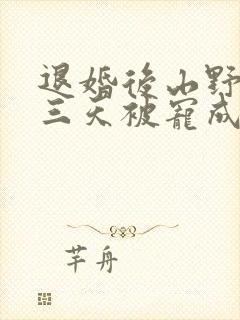 退婚後山野
三天被寵成
芊舟